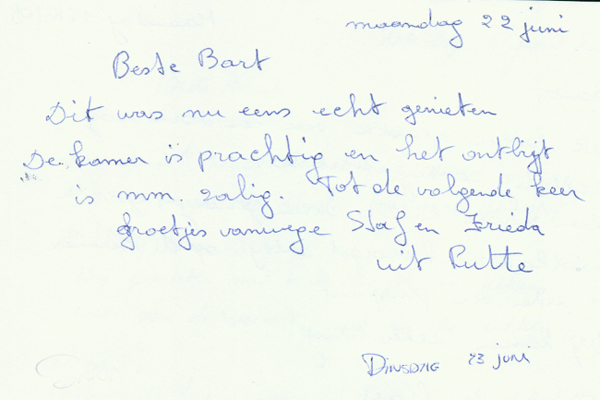 maandag 22 juni
Beste Bart
Dit was nu eens echt genieten
De kamer is prachtig en het ontbijt
is mm. zalig. Tot de volgende keer
groetjes vanwege Staf en Frieda
uit Putte
Dinsdag 23 juni